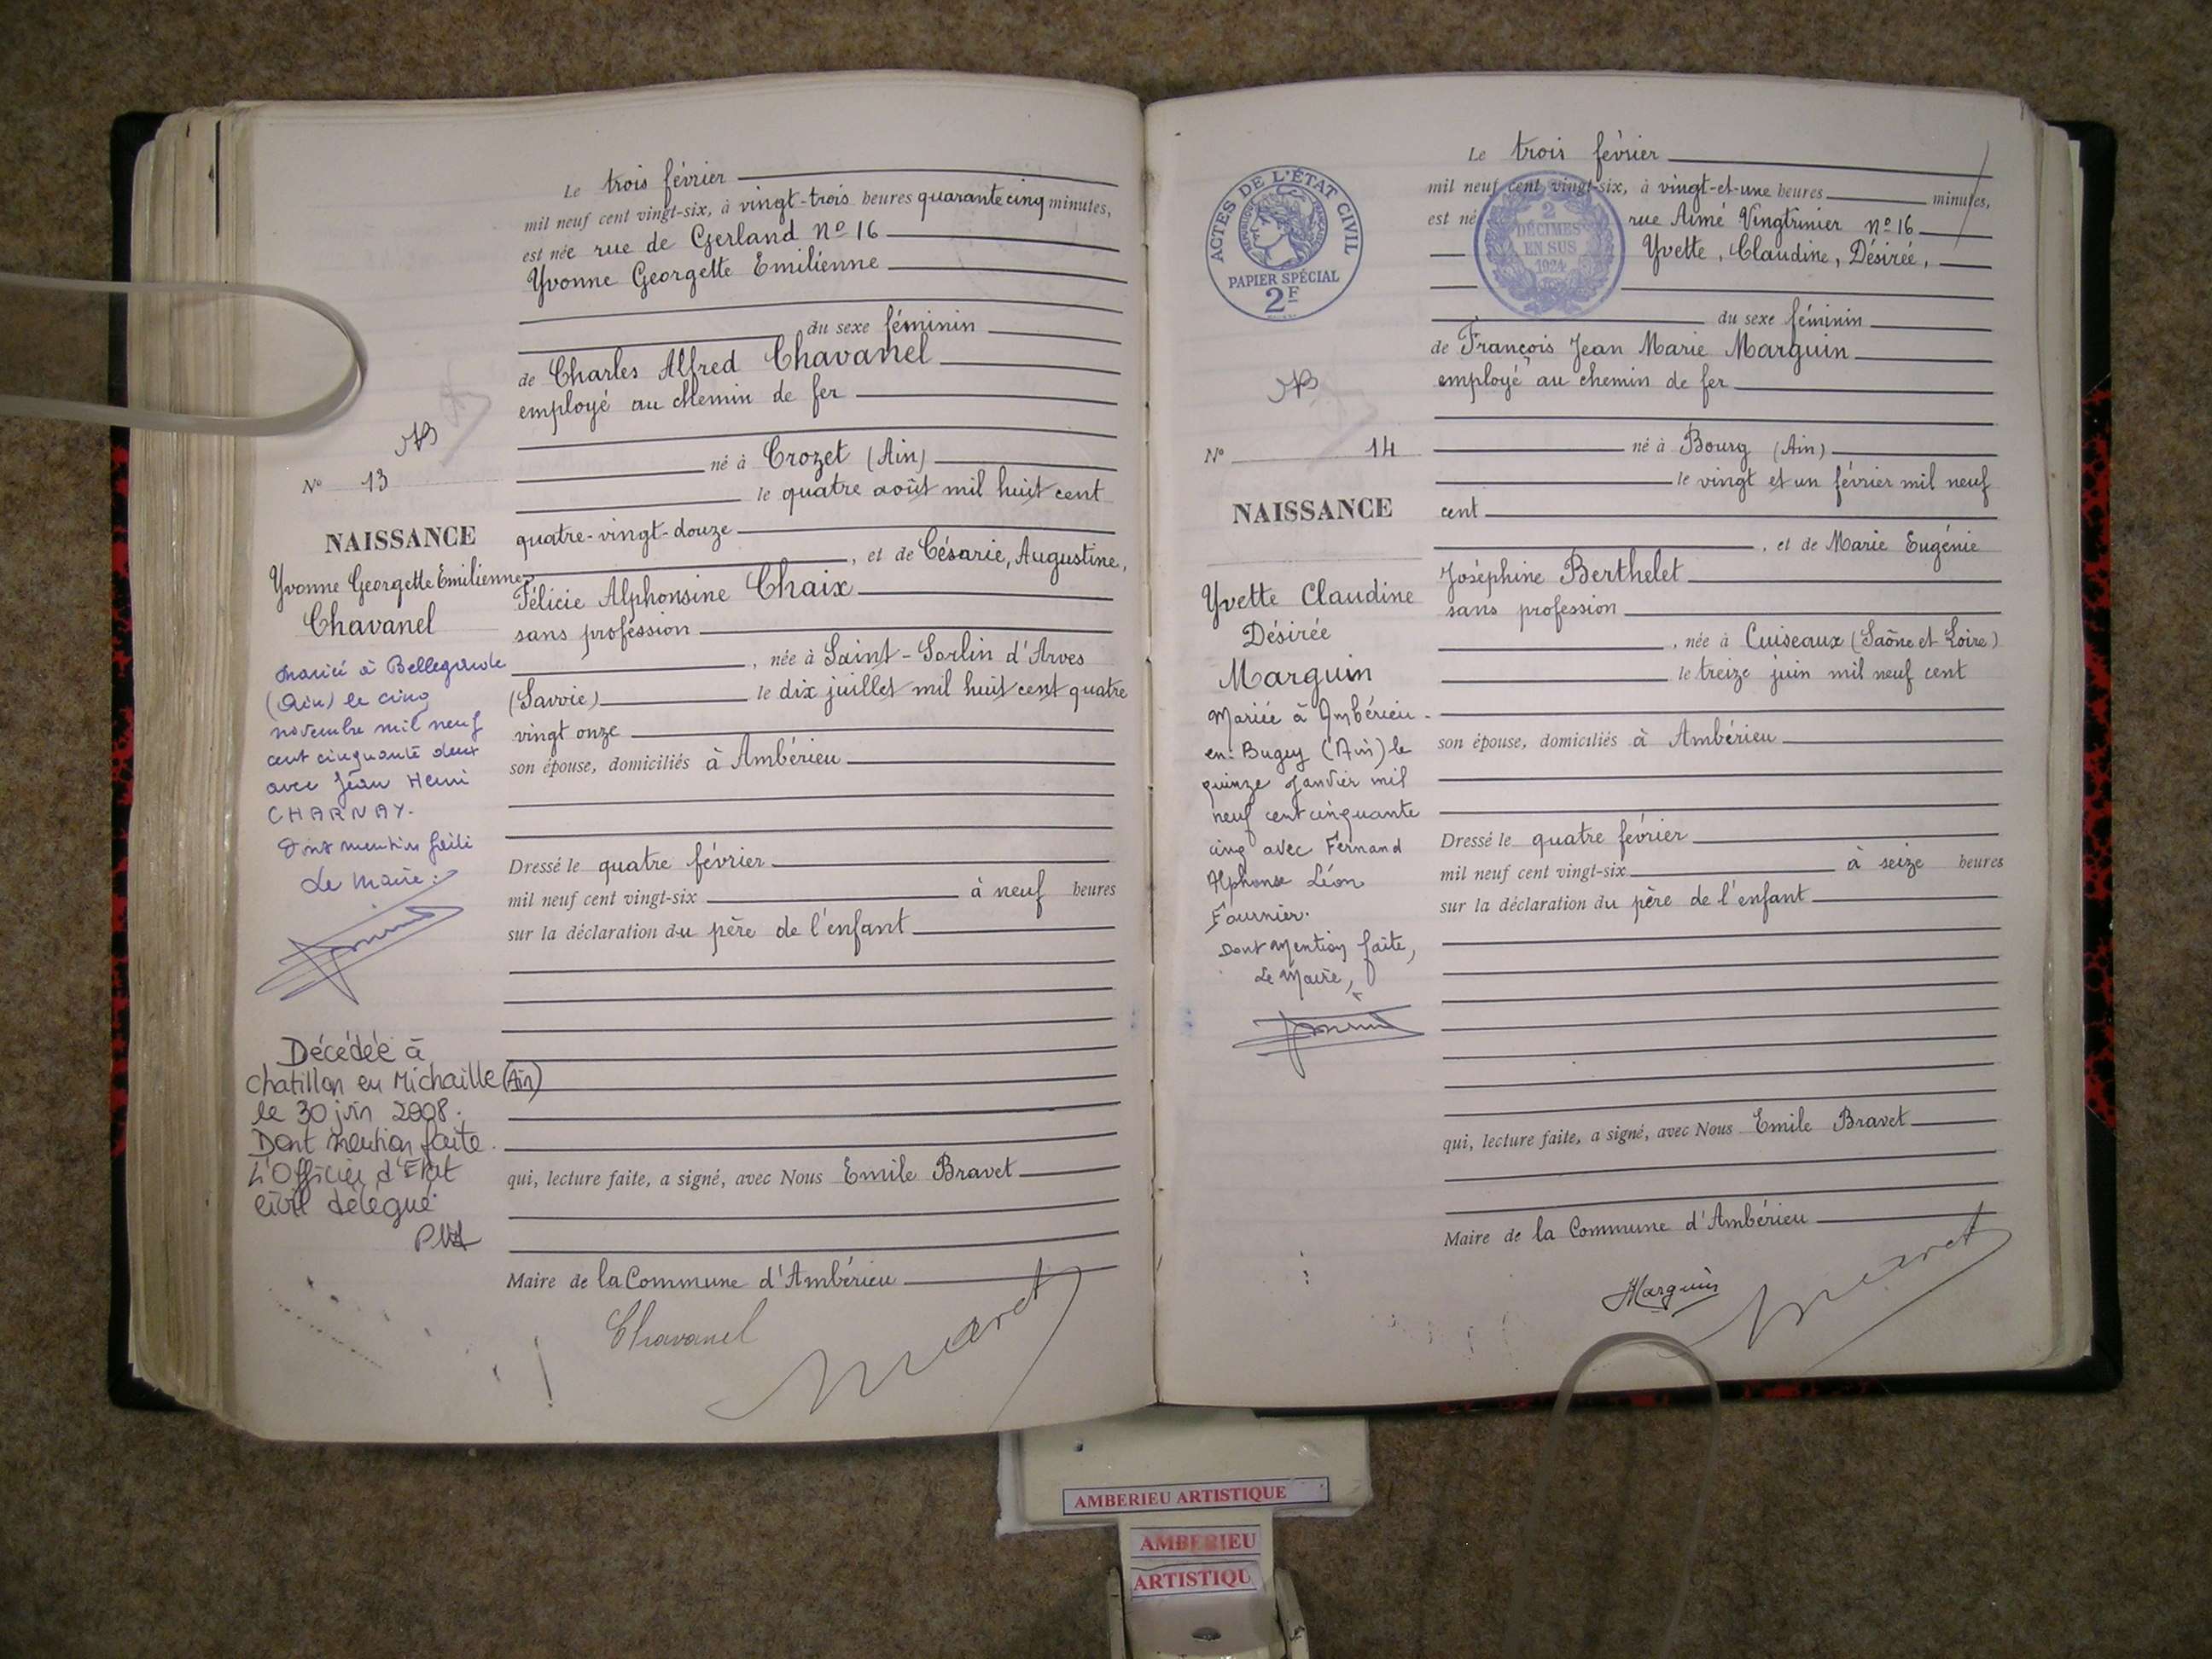 Le trois février
mil neuf cent vingt-six, à vingt-trois heures quarante cinq minutes,
est née rue de Gerland nº 16
Yvonne Georgette Emilienne
du sexe féminin
de Charles Alfred Chavanel
employé au chemin de fer
né à Crozet (Ain)
le quatre août mil huit cent
quatre-vingt-douze
, et de Césarie, Augustine,
Félicie Alphonsine Chaix
sans profession
, née à Saint-Sorlin d'Arves
(Savoie) le dix juillet mil huit cent quatre
vingt onze
son épouse, domiciliés à Ambérieu
Dressé le quatre février
mil neuf cent vingt-six à neuf heures
sur la déclaration du père de l'enfant
qui, lecture faite, a signé, avec Nous Emile Bravet
Maire de la Commune d'Ambérieu
Chavanel
Nº 13
NAISSANCE
Yvonne Georgette Emilienne
Chavanel
Mariée à Bellegarde
(Ain) le cinq
novembre mil neuf
cent cinquante deux
avec Jean Henri
CHARNAY.
Dont mention faite
Le Maire:
Décédée à
Chatillon en Michaille (Ain)
le 30 juin 2008.
Dont mention faite.
L'Officier d'Etat
Civil délégué
ACTES DE L'ÉTAT CIVIL
RÉPUBLIQUE FRANÇAISE
PAPIER SPÉCIAL
2F
2
DÉCIMES
EN SUS
1924
Le trois février
mil neuf cent vingt-six, à vingt-et-une heures minutes,
est né rue Aimé Vingtrinier nº 16
Yvette, Claudine, Désirée,
du sexe féminin
de François Jean Marie Marguin
employé au chemin de fer
né à Bourg (Ain)
le vingt et un février mil neuf
cent
, et de Marie Eugénie
Joséphine Berthelet
sans profession
, née à Cuiseaux (Saône et Loire)
le treize juin mil neuf cent
son épouse, domiciliés à Ambérieu
Dressé le quatre février
mil neuf cent vingt-six à seize heures
sur la déclaration du père de l'enfant
qui, lecture faite, a signé, avec Nous Emile Bravet
Maire de la Commune d'Ambérieu
Marguin
Bravet
Nº 14
NAISSANCE
Yvette Claudine
Désirée
Marguin
Mariée à Ambérieu-
en-Bugey (Ain) le
quinze Janvier mil
neuf cent cinquante
cinq avec Fernand
Alphonse Léon
Fournier.
Dont Mention faite,
Le Maire,
AMBERIEU ARTISTIQUE
AMBERIEU
ARTISTIQU